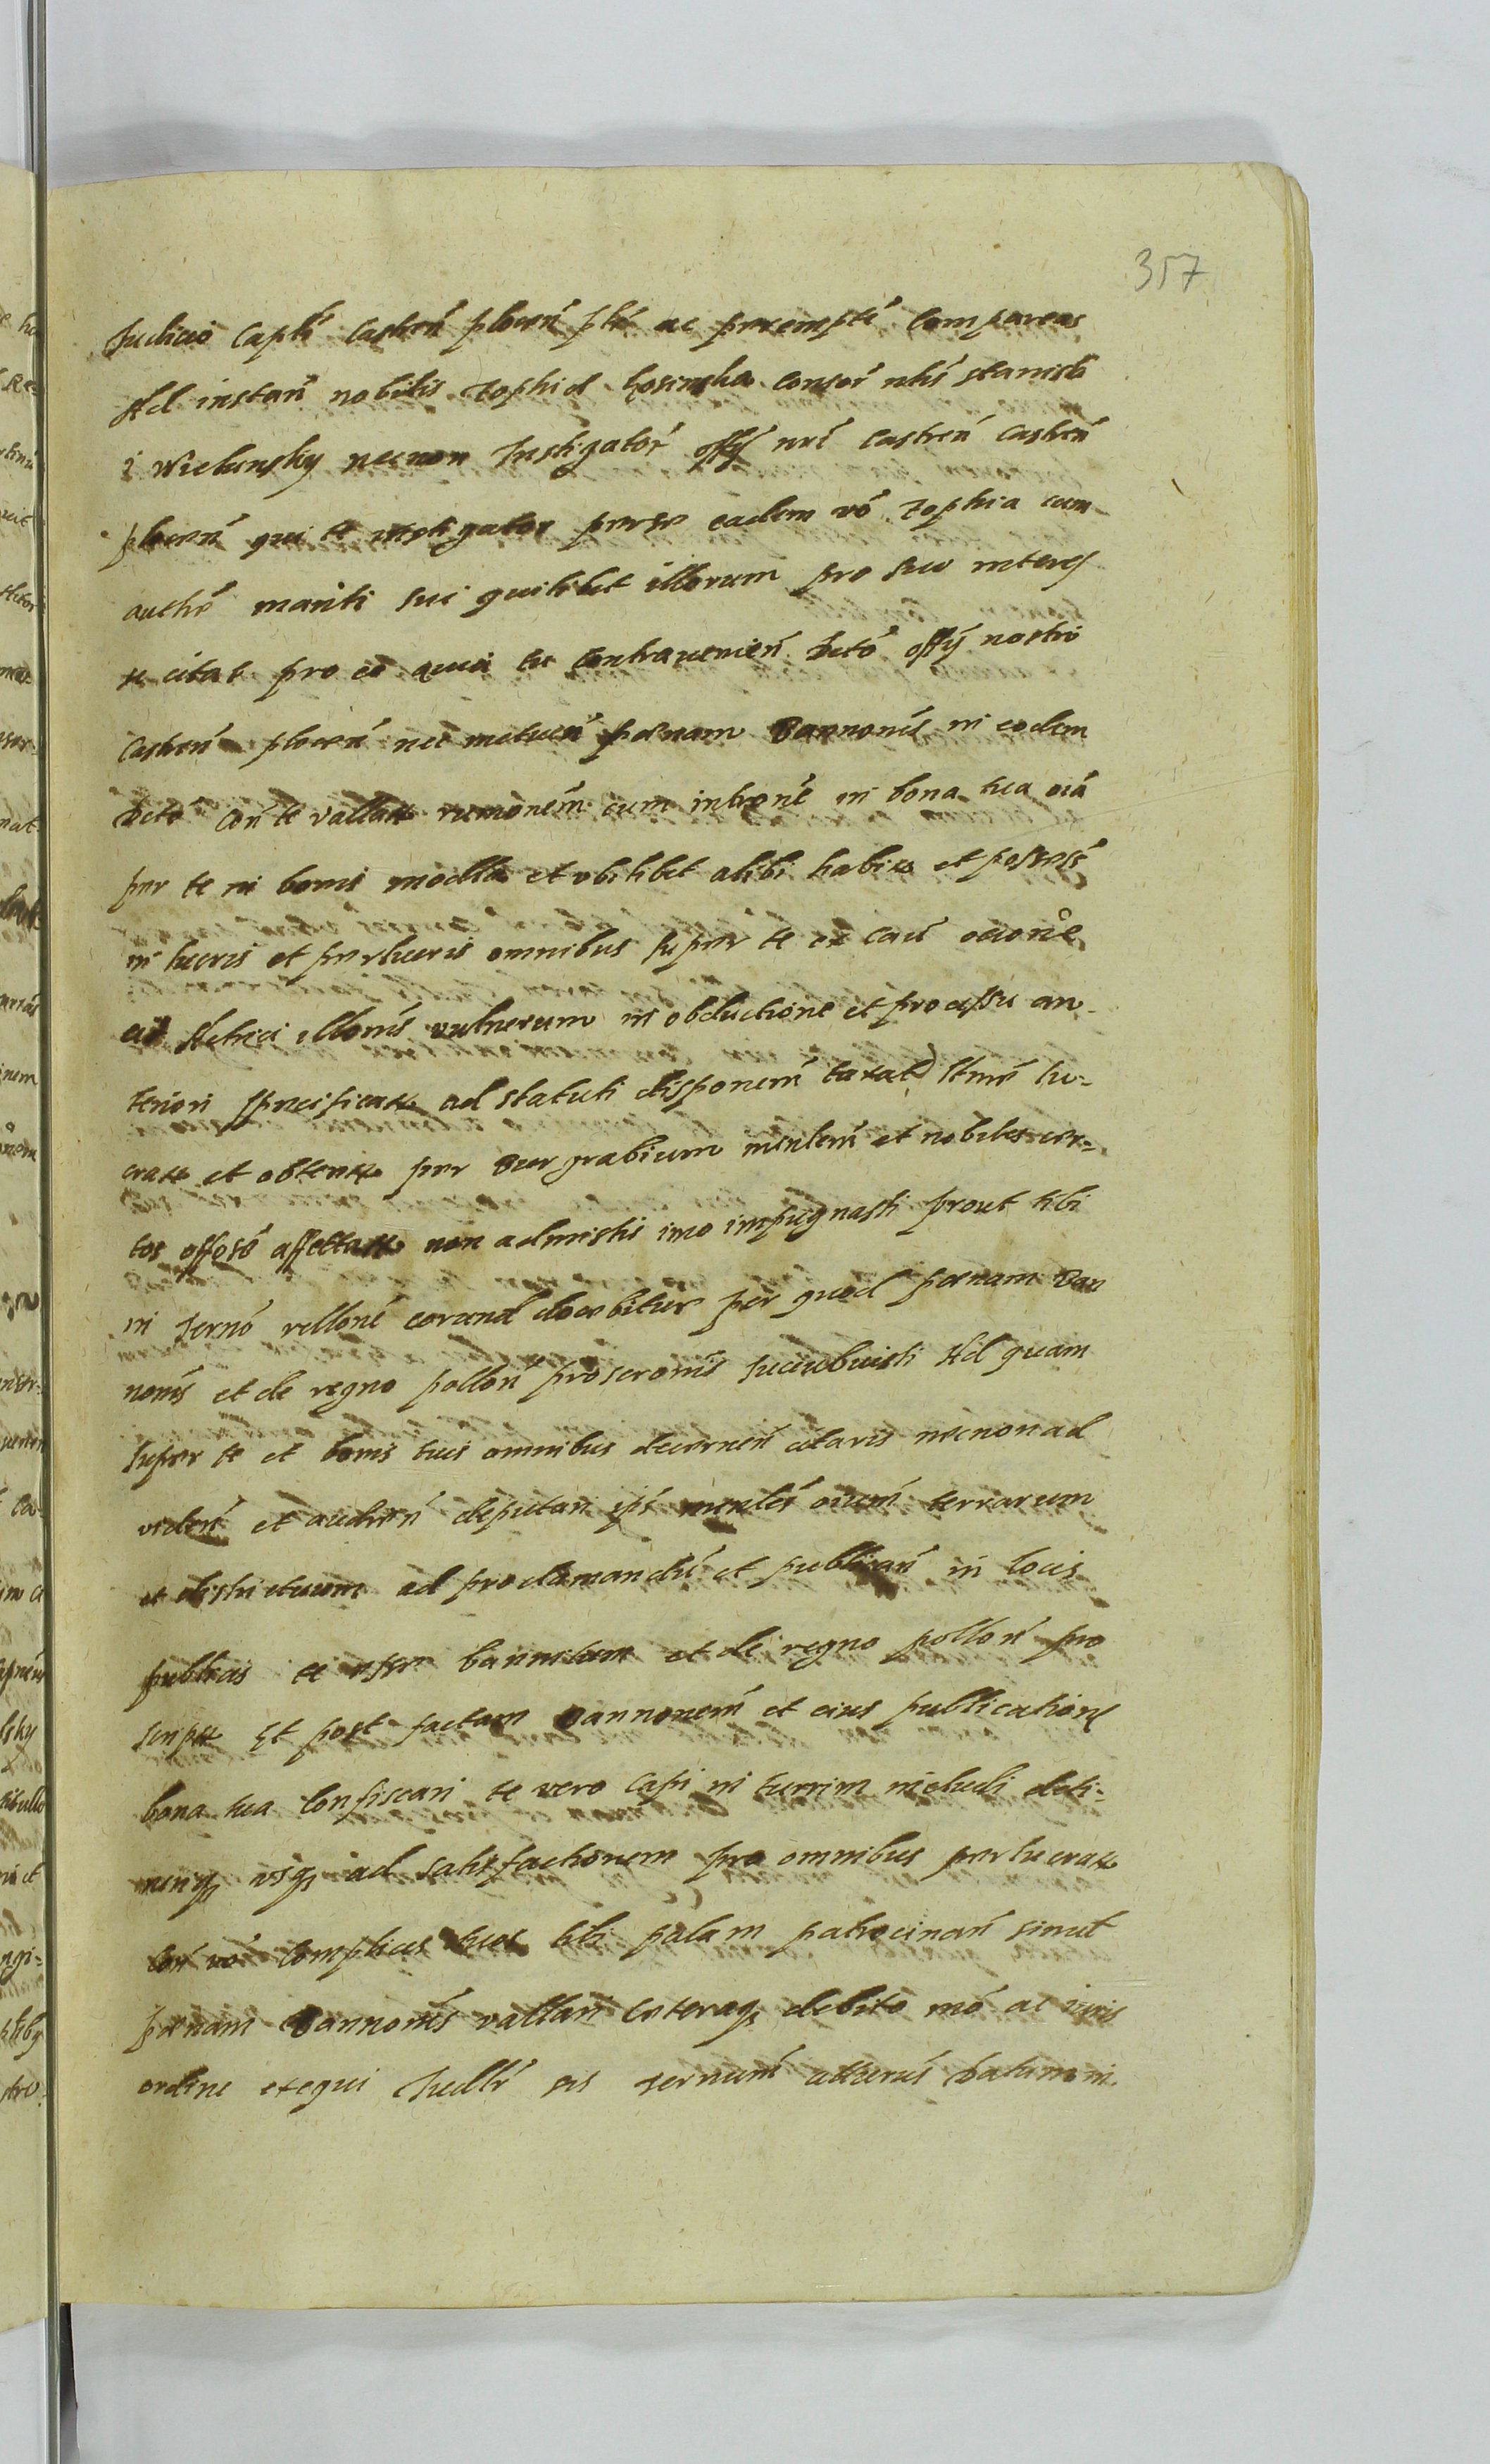 357
Judicio Capli Castreń plocen̄ pltr ac peremptē Compareas
Ad instan̄ nobilis Zophiæ Kosinska Consor̄ nłis stanisła
i Wielunsky necnon Instigator̄ offÿ nrī Castren̄ Castren̄
plocen̄ qui te instigator per se eadem vō Zophia cum
authē mariti sui quilibet illorum pro suo interes
se citat pro eo quia tu Contravenien̄ dctō offÿ nostri
Castren̄ plocen̄ nec metuen̄ pœnam Bannonis in eodem
dctō Con̄ te vallatā rumonem̄ cum introne in bona tua oiā
per te in bonis modlla et vbilibet alibi habita et possess̄
in lucris et perlucris omnibus super te ex cau ocione
aõ Actrici illonis vulnerum in obductione et processu an-
teriori specificatā ad statuti disponem̄ taxat Itmē lu-
crata et obtenta per Burgrabium ministem̄ et nobiles cer-
tos offosē affectatā non admisistis imo impugnasti prout tibi
in termō rellonē eorund docebitur per quod pœnam Ban
nonis et de regno pollon̄ proscronis succubuisti Ad quam
super te et bonis tuis omnibus decernen̄ citaris necnon ad
viden̄ et audien̄ deputari ips ministē oium terrarum
et districtuum ad proclamandū et publican̄ in locis
publicis te esse bannitum et de regno pollon̄ pro
scriptū Et post factam Bannonem̄ et eius publicatione
bona tua Confiscari te vero Capi in turrim includi deti-
neriq vsq ad satisfactionem pro omnibus perlucratis
Con̄ vō Complices tuos tibi palam patrocinan̄ simul
pœnam Bannonis vallari Ceteraq debito mō ac iuris
ordine exequi Juditr sis ternum atturus Datum in